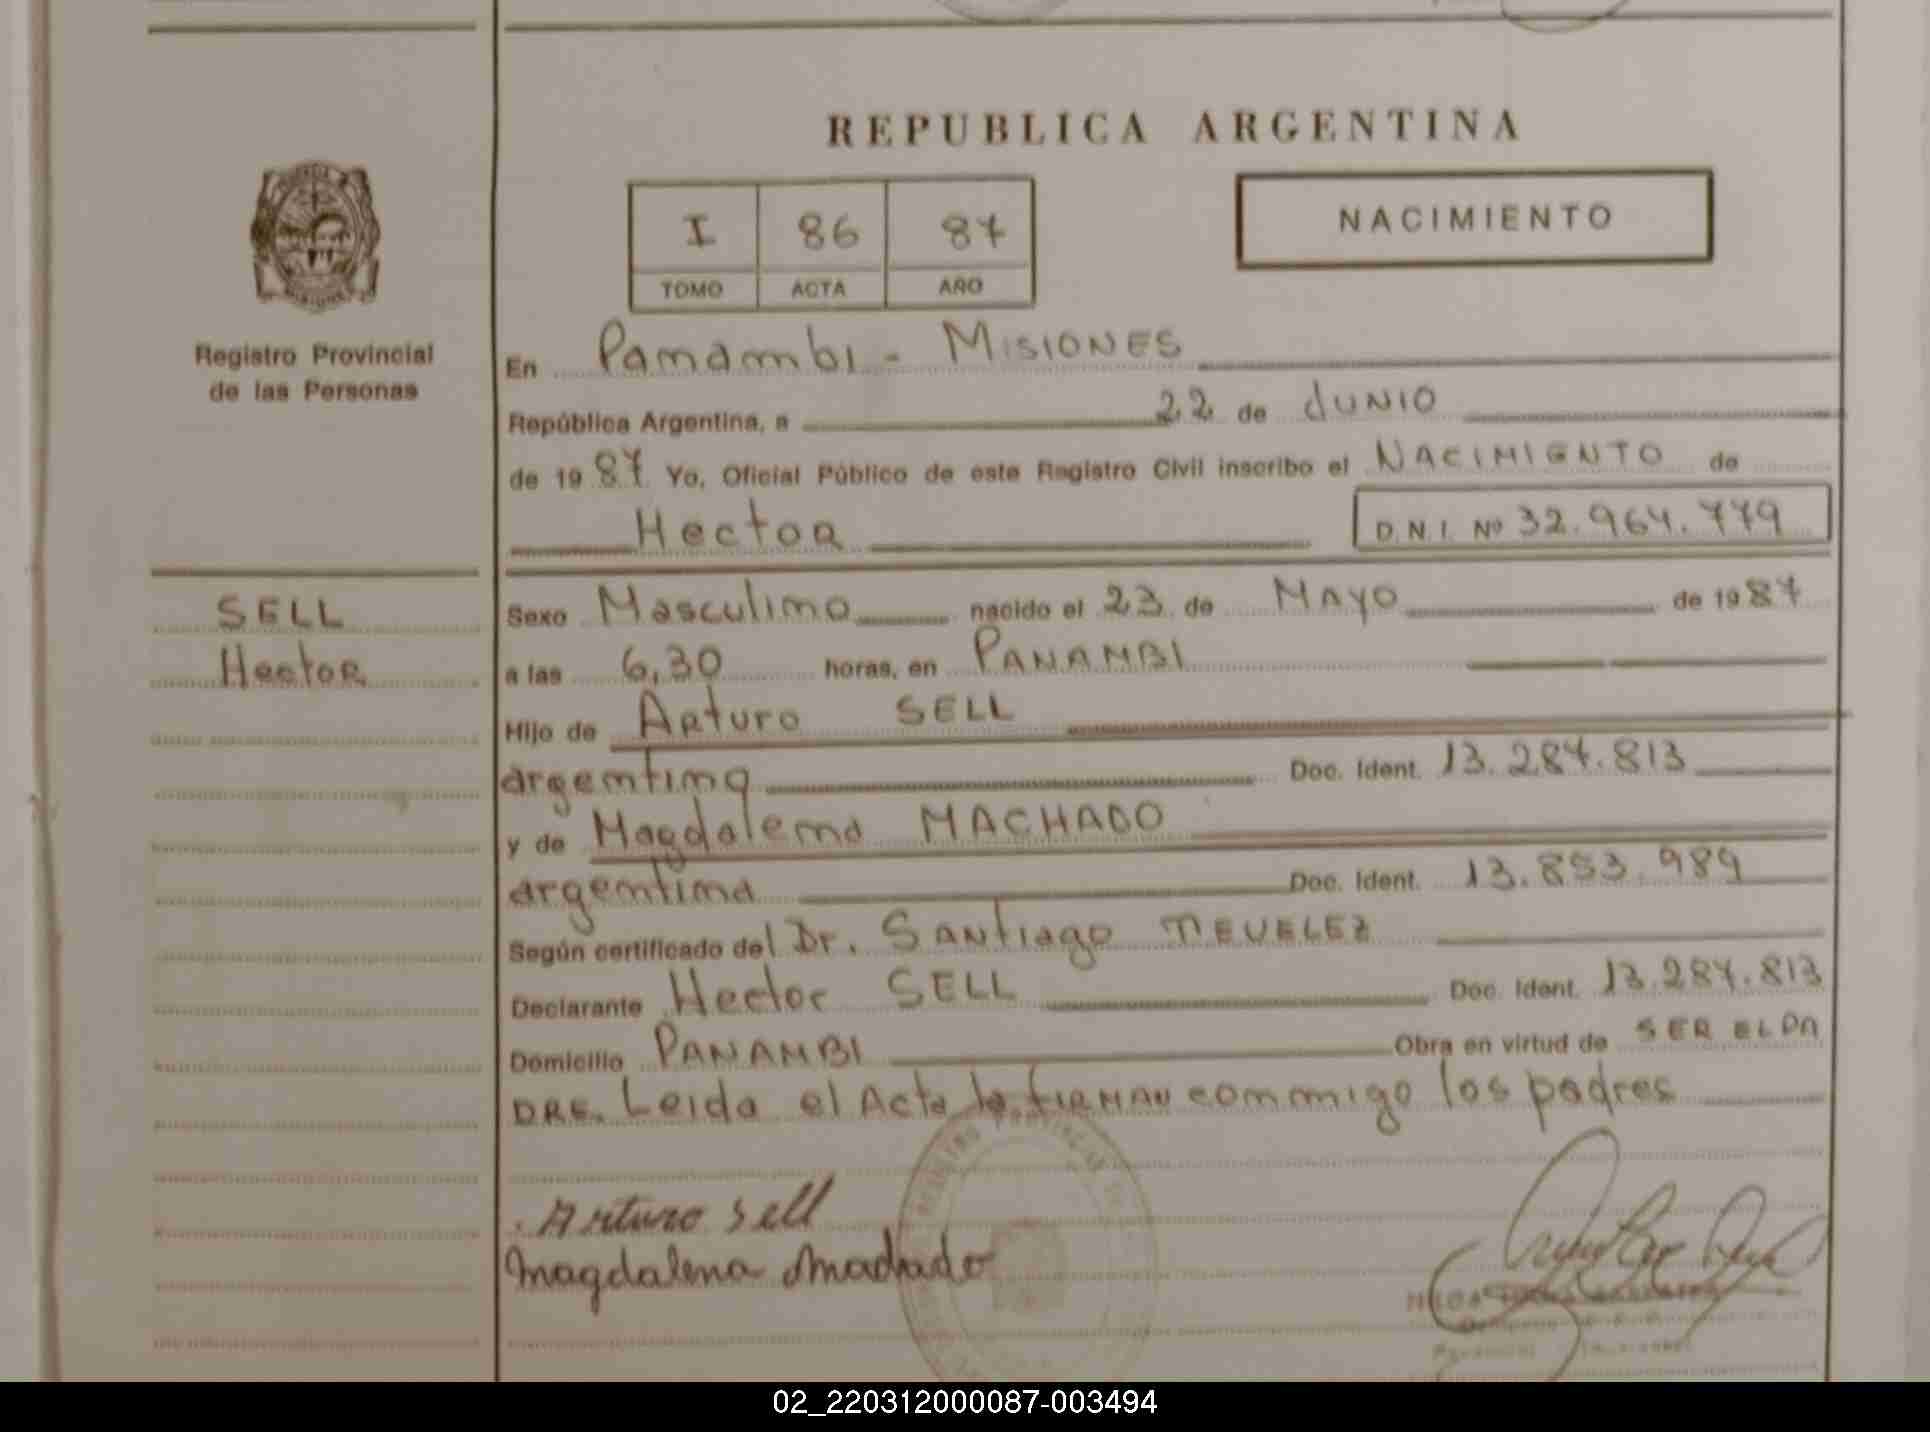 REPUBLICA ARGENTINA
I 86 87
TOMO ACTA AÑO
NACIMIENTO
Registro Provincial
de las Personas
En Panambi - MISIONES
República Argentina, a 22 de JUNIO
de 19 87 Yo, Oficial Público de este Registro Civil inscribo el NACIMIENTO de
Hector D.N.I. Nº 32.964.779
SELL
Hector
Sexo Masculino nacido el 23 de MAYO de 19 87
a las 6,30 horas, en PANAMBI
Hijo de Arturo SELL
argentino Doc. Ident. 13.287.813
y de Magdalena MACHADO
argentina Doc. Ident. 13.853.989
Según certificado del Dr. Santiago
Declarante Hector SELL Doc. Ident. 13.287.813
Domicilio PANAMBI Obra en virtud de SER EL PA
DRE. Leida el Acta la FIRMAN conmigo los padres
Arturo Sell
Magdalena Machado
REGISTRO PROVINCIAL DE
02_220312000087-003494